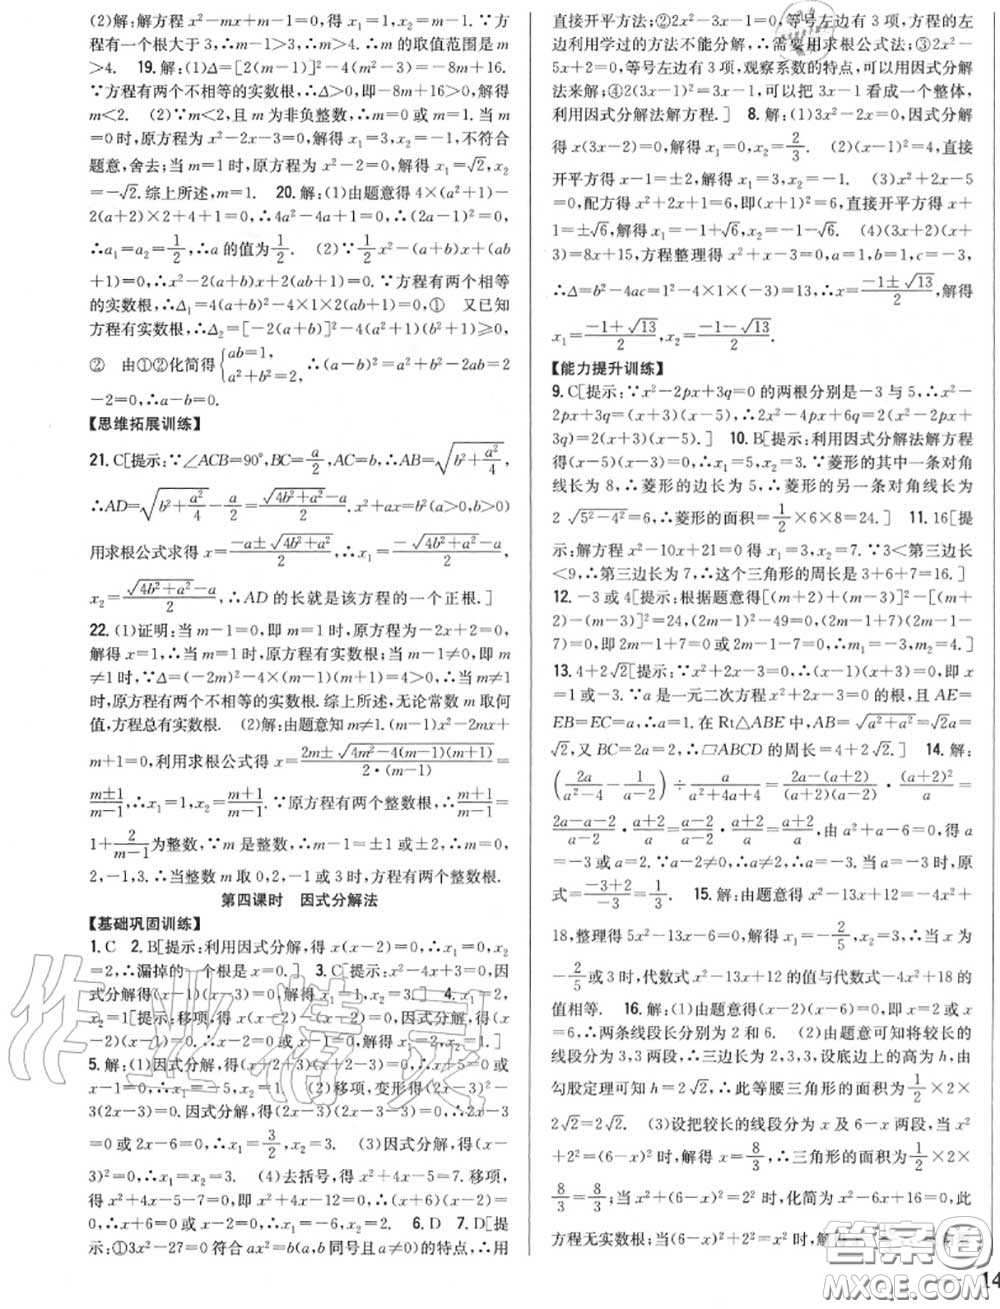 (2)解:解方程x²-mx+m-1=0,得x₁=m-1,x₂=1.∵方
程有一个根大于3,∴m-1>3,∴m>4.∴m的取值范围是m
>4. 19.解:(1)Δ=[2(m-1)]²-4(m²-3)=-8m+16.
∵方程有两个不相等的实数根,∴Δ>0,即-8m+16>0.解得
m<2. (2)∵m<2,且m为非负整数,∴m=0或m=1.当m
=0时,原方程为x²-2x-3=0,解得x₁=3,x₂=-1,不符合
题意,舍去;当m=1时,原方程为x²-2=0,解得x₁=√2,x₂
=-√2.综上所述,m=1. 20.解:(1)由题意得4×(a²+1)-
2(a+2)×2+4+1=0,∴4a²-4a+1=0,∴(2a-1)²=0.
∴a₁=a₂=1/2,∴a的值为1/2. (2)∵x²-(a+b)x+(ab
+1)=0,∴x²-2(a+b)x+2ab+1=0.∵方程有两个相等
的实数根,∴Δ₁=4(a+b)²-4×1×2(2ab+1)=0,① 又已知
方程有实数根,∴Δ₂=[-2(a+b)]²-4×1(a²+1)(b²+1)≥0,
② 由①②化简得{ab=1, a²+b²=2,∴(a-b)²=a²+b²-2ab=2
-2=0,∴a-b=0.
【思维拓展训练】
21.C[提示:∵∠ACB=90°,BC=a/2,AC=b,∴AB=√(b²+a²/4),
∴AD=√(b²+a²/4)-a/2=(√(4b²+a²)-a)/2.x²+ax=b²(a>0,b>0)
用求根公式求得x=(-a±√(4b²+a²))/2,∴x₁=(-√(4b²+a²)-a)/2,
x₂=(√(4b²+a²)-a)/2,∴AD的长就是该方程的一个正根.]
22.(1)证明:当m-1=0,即m=1时,原方程为-2x+2=0,
解得x=1.∴当m=1时,该方程有实数根;当m-1≠0,即m
≠1时,∵Δ=(-2m)²-4(m-1)(m+1)=4>0,∴当m≠1
时,原方程有两个不相等的实数根.综上所述,无论常数m取何
值,方程总有实数根. (2)解:由题意知m≠1.(m-1)x²-2mx+
m+1=0,利用求根公式得x=(2m±√(4m²-4(m-1)(m+1)))/(2·(m-1))=
(m±1)/(m-1),∴x₁=1,x₂=(m+1)/(m-1).∵方程有两个整数根,∴(m+1)/(m-1)=
1+2/(m-1)为整数.∵m是整数,∴m-1=±1或±2,∴m=0,
2,-1,3.∴当整数m取0,2,-1或3时,方程有两个整数根.
第四课时 因式分解法
【基础巩固训练】
1.C 2.B[提示:利用因式分解,得x(x-2)=0,∴x₁=0,x₂
=2,∴漏掉的一个根是x=0.] 3.C[提示:x²-4x+3=0,因
式分解得(x-1)(x-3)=0,解得x₁=1,x₂=3.] 4.x₁=2,
x₂=1[提示:移项,得x(x-2)-(x-2)=0,因式分解,得(x-
2)(x-1)=0,解得x₁=2,x₂=1.]
5.解:(1)因式分解,得x(x+5)=0,∴x+5=0或x=0.∴x₁
=0,∴x₁=-5,x₂=0. (2)移项,变形得(2x-3)²-
3(2x-3)=0.因式分解,得(2x-3)(2x-6)=0.∴2x-3=
0或2x-6=0,∴x₁=3/2,x₂=3. (3)因式分解,得(x-
3)²=0.∴x₁=x₂=3. (4)去括号,得x²+4x-5=7.移项,
得x²+4x-5-7=0,即x²+4x-12=0,∴(x+6)(x-2)=
0,∴x+6=0或x-2=0,∴x₁=-6,x₂=2. 6.D 7.D[提
示:①3x²-27=0符合ax²=b(a,b同号且a≠0)的特点,∴用
直接开平方法;②2x²-3x-1=0,等号左边有3项,方程的左
边利用学过的方法不能分解,∴需要用求根公式法;③2x²-
5x+2=0,等号左边有3项,观察系数的特点,可以用因式分解
法来解;④2(3x-1)²=3x-1,可以把3x-1看成一个整体,
利用因式分解法解方程.] 8.解:(1)3x²-2x=0,因式分解
得x(3x-2)=0,解得x₁=0,x₂=2/3. (2)(x-1)²=4,直接
开平方得x-1=±2,解得x₁=3,x₂=-1. (3)x²+2x-5
=0,配方得x²+2x+1=6,即(x+1)²=6,直接开平方得x+
1=±√6,解得x₁=-1+√6,x₂=-1-√6. (4)(x+3)(x
+3)=8x+15,方程整理得x²+x-3=0,a=1,b=1,c=-3,
∴Δ=b²-4ac=1²-4×1×(-3)=13,∴x=(-1±√13)/2,解得
x₁=(-1+√13)/2,x₂=(-1-√13)/2.
【能力提升训练】
9.C[提示:∵x²-2px+3q=0的两根分别是-3与5,∴x²-
2px+3q=(x+3)(x-5),∴2x²-4px+6q=2(x²-2px+
3q)=2(x+3)(x-5).] 10.B[提示:利用因式分解法解方程
得(x-5)(x-3)=0,∴x₁=5,x₂=3.∵菱形的其中一条对角
线长为8,∴菱形的边长为5,∴菱形的另一条对角线长为
2√(5²-4²)=6,∴菱形的面积=1/2×6×8=24.] 11.16[提
示:解方程x²-10x+21=0得x₁=3,x₂=7.∵3<第三边长
<9,∴第三边长为7,∴这个三角形的周长是3+6+7=16.]
12.-3或4[提示:根据题意得[(m+2)+(m-3)]²-[(m+
2)-(m-3)]²=24,(2m-1)²-49=0,(2m-1+7)(2m-1-
7)=0,即2m-1+7=0或2m-1-7=0,∴m₁=-3,m₂=4.]
13.4+2√2[提示:∵x²+2x-3=0,∴(x-1)(x+3)=0,即x
=1或-3.∵a是一元二次方程x²+2x-3=0的根,且AE=
EB=EC=a,∴a=1.在Rt△ABE中,AB=√(a²+a²)=√2a=
√2,又BC=2a=2,∴▱ABCD的周长=4+2√2.] 14.解:
(2a/(a²-4)-1/(a-2))÷a/(a²+4a+4)=(2a-(a+2))/((a+2)(a-2))·(a+2)²/a=
(2a-a-2)/(a-2)·(a+2)/a=(a-2)/(a-2)·(a+2)/a=(a+2)/a,由a²+a-6=0,得a
=-3或a=2.∵a-2≠0,∴a≠2,∴a=-3.当a=-3时,原
式=(-3+2)/(-3)=1/3. 15.解:由题意得x²-13x+12=-4x²+
18,整理得5x²-13x-6=0,解得x₁=-2/5,x₂=3.∴当x为
-2/5或3时,代数式x²-13x+12的值与代数式-4x²+18的
值相等. 16.解:(1)由题意得(x-2)(x-6)=0,即x=2或x
=6.∴两条线段长分别为2和6. (2)由题意可知将较长的
线段分为3,3两段,∴三角形三边长为2,3,3,设底边上的高为h,由
勾股定理可知h=2√2,∴此等腰三角形的面积为1/2×2×
2√2=2√2. (3)设把较长的线段分为x及6-x两段,当x²
+2²=(6-x)²时,解得x=8/3,∴三角形的面积为1/2×2×
8/3=8/3;当x²+(6-x)²=2²时,化简为x²-6x+16=0,此
方程无实数根;当(6-x)²+2²=x²时,解得
14
答案圈
MXQE.COM
作业精灵